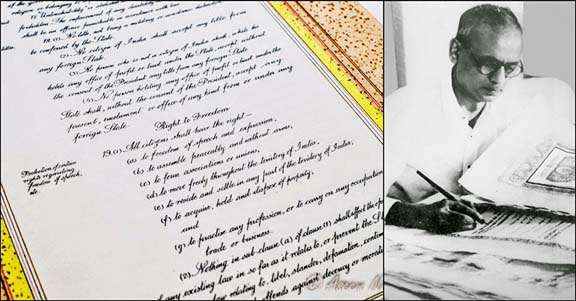 forbidden. The enforcement of any disability
shall be an offence punishable in accordance with law.
18.(1). No title, not being a military or academic
be conferred by the State.
(2). No citizen of India shall accept any title from
any foreign State.
(3). No person who is not a citizen of India shall, while he
holds any office of profit or trust under the State, accept without
the consent of the President any title from any foreign State.
(4). No person holding any office of profit or trust under the
State shall, without the consent of the President, accept any
present, emolument or office of any kind from or under any
foreign State.
Right to Freedom
Protection of certain
rights regarding
freedom of speech,
etc.
19.(1). All citizens shall have the right —
(a) to freedom of speech and expression;
(b) to assemble peaceably and without arms;
(c) to form associations or unions;
(d) to move freely throughout the territory of India;
(e) to reside and settle in any part of the territory of India;
(f) to acquire, hold and dispose of property;
and
(g) to practise any profession, or to carry on any occupation
trade or business.
(2). Nothing in sub-clause (a) of clause (1) shall affect the
any existing law in so far as it relates to, or prevent the
law relating to, libel, slander, defamation,
offends against decency or